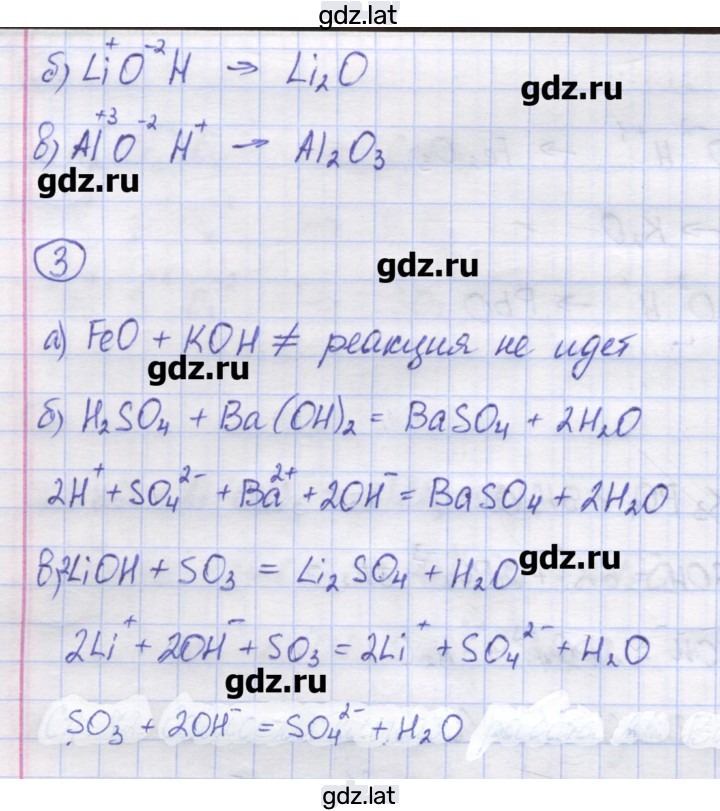 gdz.lat
б) Li⁺O⁻²H → Li₂O
gdz.ru
в) Al⁺³O⁻²H⁺ → Al₂O₃
gdz.ru
3
gdz.ru
а) FeO + KOH ≠ реакция не идет
gdz.ru
б) H₂SO₄ + Ba(OH)₂ = BaSO₄ + 2H₂O
2H⁺ + SO₄²⁻ + Ba²⁺ + 2OH⁻ = BaSO₄ + 2H₂O
в) 2LiOH + SO₃ = Li₂SO₄ + H₂O
gdz.ru
2Li⁺ + 2OH⁻ + SO₃ = 2Li⁺ + SO₄²⁻ + H₂O
gdz.ru
SO₃ + 2OH⁻ = SO₄²⁻ + H₂O
gdz.lat